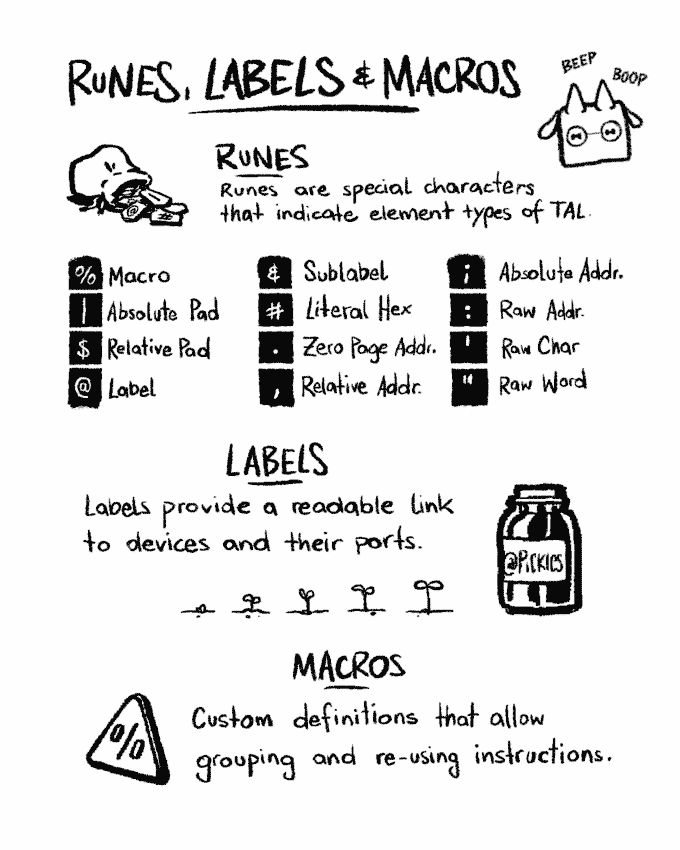 RUNES, LABELS & MACROS
BEEP
BOOP
RUNES
Runes are special characters
that indicate element types of TAL.
% Macro
| Absolute Pad
$ Relative Pad
@ Label
& Sublabel
# Literal Hex
. Zero Page Addr.
, Relative Addr.
; Absolute Addr.
: Raw Addr.
' Raw Char
" Raw Word
LABELS
Labels provide a readable link
to devices and their ports.
@PiCKlES
MACROS
%
Custom definitions that allow
grouping and re-using instructions.